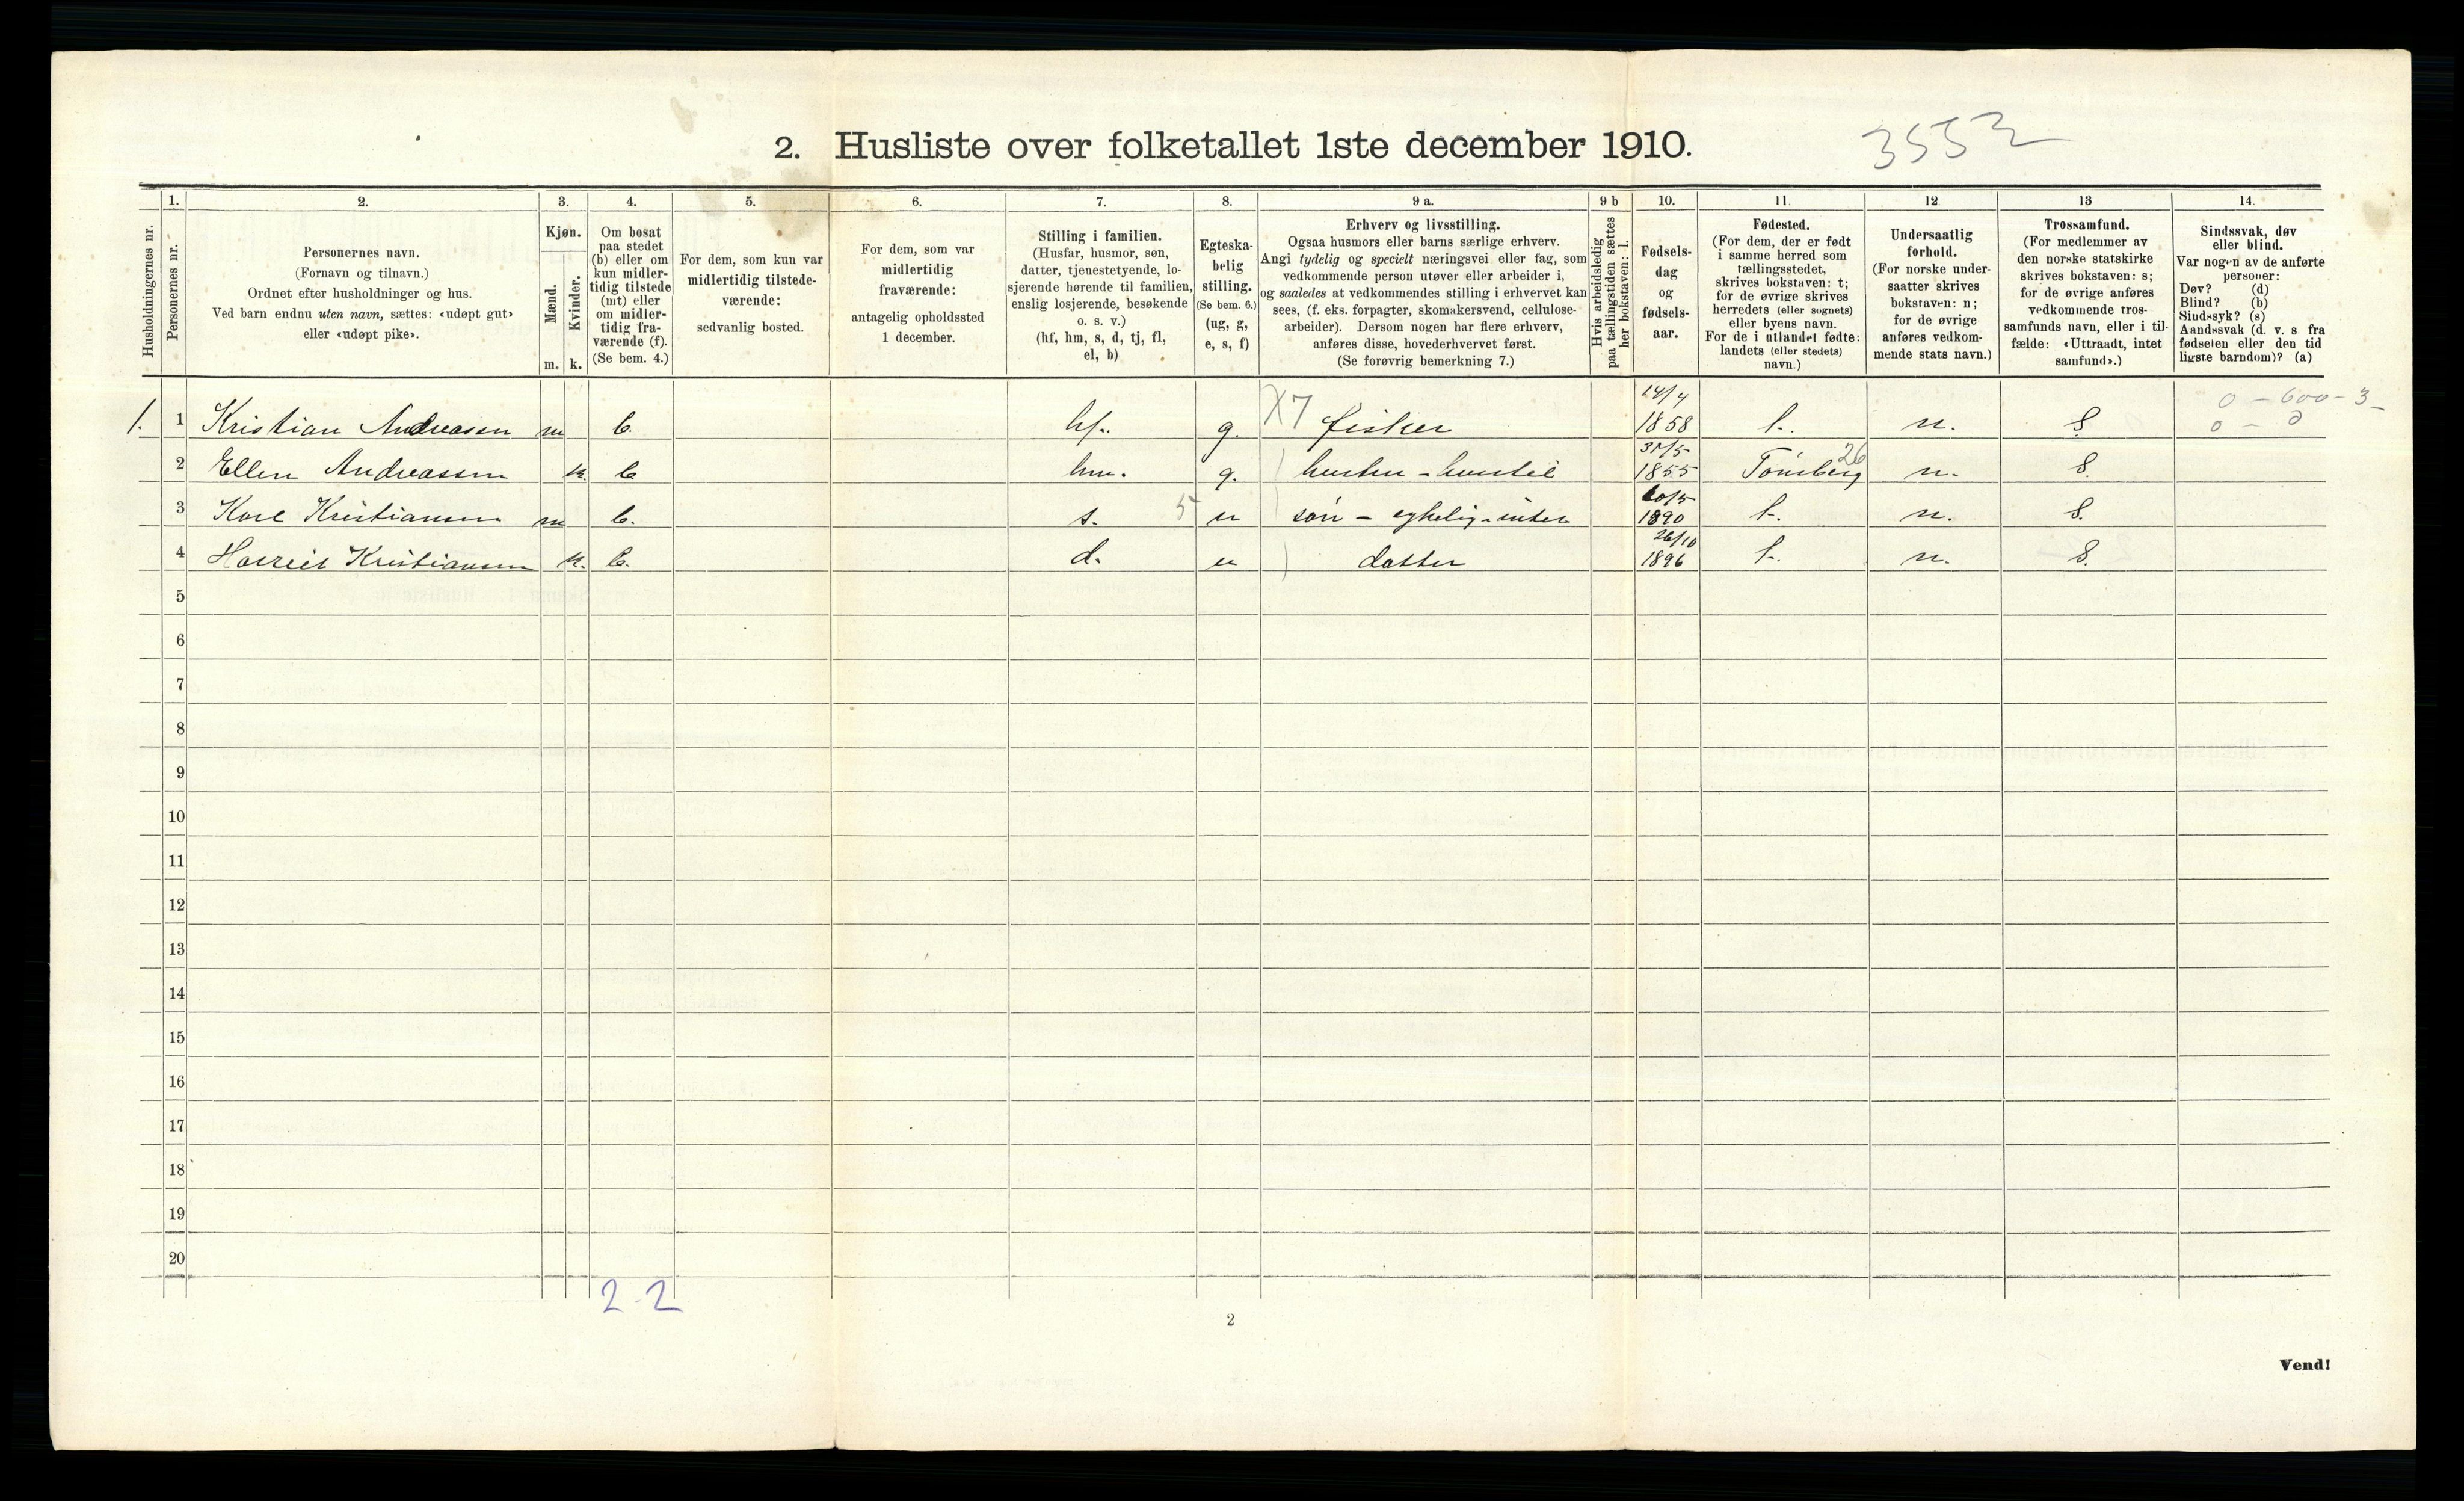 2. Husliste over folketallet 1ste december 1910.
3553
Husholdningernes nr.
1. Personernes nr.
2. Personernes navn.
(Fornavn og tilnavn.)
Ordnet efter husholdninger og hus.
Ved barn endnu uten navn, sættes: «udøpt gut»
eller «udøpt pike».
3. Kjøn.
Mænd. m.
Kvinder. k.
4. Om bosat
paa stedet
(b) eller om
kun midler-
tidig tilstede
(mt) eller
om midler-
tidig fra-
værende (f).
(Se bem. 4.)
5. For dem, som kun var
midlertidig tilstede-
værende:
sedvanlig bosted.
6. For dem, som var
midlertidig
fraværende:
antagelig opholdssted
1 december.
7. Stilling i familien.
(Husfar, husmor, søn,
datter, tjenestetyende, lo-
sjerende hørende til familien,
enslig losjerende, besøkende
o. s. v.)
(hf, hm, s, d, tj, fl,
el, b)
8. Egteska-
belig
stilling.
(Se bem. 6.)
(ug, g,
e, s, f)
9 a. Erhverv og livsstilling.
Ogsaa husmors eller barns særlige erhverv.
Angi tydelig og specielt næringsvei eller fag, som
vedkommende person utøver eller arbeider i,
og saaledes at vedkommendes stilling i erhvervet kan
sees, (f. eks. forpagter, skomakersvend, cellulose-
arbeider). Dersom nogen har flere erhverv,
anføres disse, hovederhvervet først.
(Se forøvrig bemerkning 7.)
9 b Hvis arbeidsledig
paa tællingstiden sættes
her bokstaven: l.
10. Fødsels-
dag
og
fødsels-
aar.
11. Fødested.
(For dem, der er født
i samme herred som
tællingsstedet,
skrives bokstaven: t;
for de øvrige skrives
herredets (eller sognets)
eller byens navn.
For de i utlandet fødte:
landets (eller stedets)
navn.)
12. Undersaatlig
forhold.
(For norske under-
saatter skrives
bokstaven: n;
for de øvrige
anføres vedkom-
mende stats navn.)
13 Trossamfund.
(For medlemmer av
den norske statskirke
skrives bokstaven: s;
for de øvrige anføres
vedkommende tros-
samfunds navn, eller i til-
fælde: «Uttraadt, intet
samfund».)
14. Sindssvak, døv
eller blind.
Var nogen av de anførte
personer:
Døv? (d)
Blind? (b)
Sindssyk? (s)
Aandssvak (d. v. s fra
fødselen eller den tid
ligste barndom)? (a)
0 - 600 - 3
0 - 0
1. 1 Kristian Andreasen m b. hf. g. X7 fisker 14/4 1858 t. n. S.
2 Ellen Andreassen k. b hm. g. hustru - hustel 31/5 1855 Tønsberg 26 n. S.
3 Karl Kristiansen m b. s. 5 10/5 1890 t. n. S.
4 Kristiansen k. b. d. datter 26/10 1896 t. n. S.
5
6
7
8
9
10
11
12
13
14
15
16
17
18
19
20
2 - 2
2
Vend!